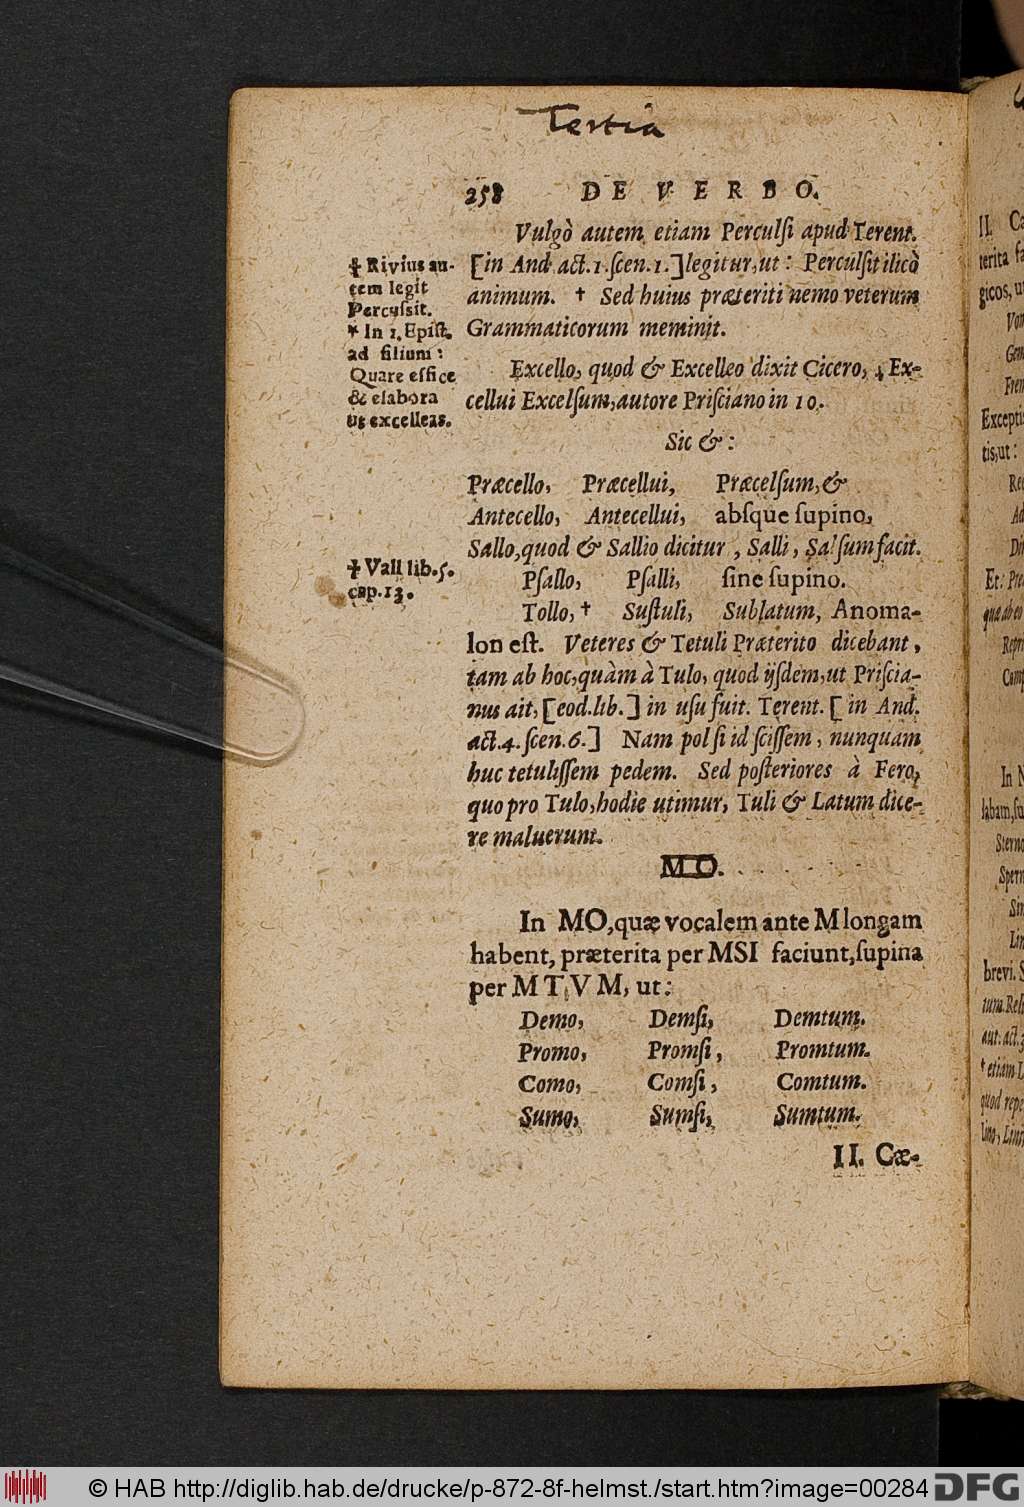 Tertia
258 DE VERBO.
Vulgò autem etiam Perculſi apud Terent.
[in And act. 1. ſcen. 1.] legitur, ut: Perculſit ilicò
animum. † Sed huius præteriti nemo veterum
Grammaticorum meminit.
‡ Rivius au-
tem legit
Percuſsit.
* In 1. Epiſt.
ad filium:
Quare effice
& elabora
ut excelleas.
Excello, quod & Excelleo dixit Cicero, * Ex-
cellui Excelſum, autore Priſciano in 10.
Sic &:
Præcello, Præcellui, Præcelſum, &
Antecello, Antecellui, abſque ſupino,
Sallo, quod & Sallio dicitur, Salli, Salſum facit.
‡ Vall lib. 5.
cap. 13.
Pſallo, Pſalli, ſine ſupino.
Tollo, † Suſtuli, Sublatum, Anoma-
lon eſt. Veteres & Tetuli Præterito dicebant,
tam ab hoc, quàm à Tulo, quod ijſdem, ut Priſcia-
nus ait, [eod. lib.] in uſu fuit. Terent. [in And.
act. 4. ſcen. 6.] Nam pol ſi id ſciſſem, nunquam
huc tetuliſſem pedem. Sed poſteriores à Fero,
quo pro Tulo, hodie utimur, Tuli & Latum dice-
re maluerunt.
MO.
In MO, quæ vocalem ante M longam
habent, præterita per MSI faciunt, ſupina
per MTVM, ut:
Demo, Demſi, Demtum.
Promo, Promſi, Promtum.
Como, Comſi, Comtum.
Sumo, Sumſi, Sumtum.
II. Cæ-
II. Cæ
terita fa
gicos, u
Vom
Gem
Frem
Excepti
tis, ut:
Red
Ad
Dir
Et: Pre
quæ ab eo
Repri
Comp
In N
labam, ſu
Sterno
Spern
Sin
Lin
brevi. S
tum. Reſt
aut. act. 3
† etiam L
quod repe
Lino, Linit
© HAB http://diglib.hab.de/drucke/p-872-8f-helmst./start.htm?image=00284 DFG